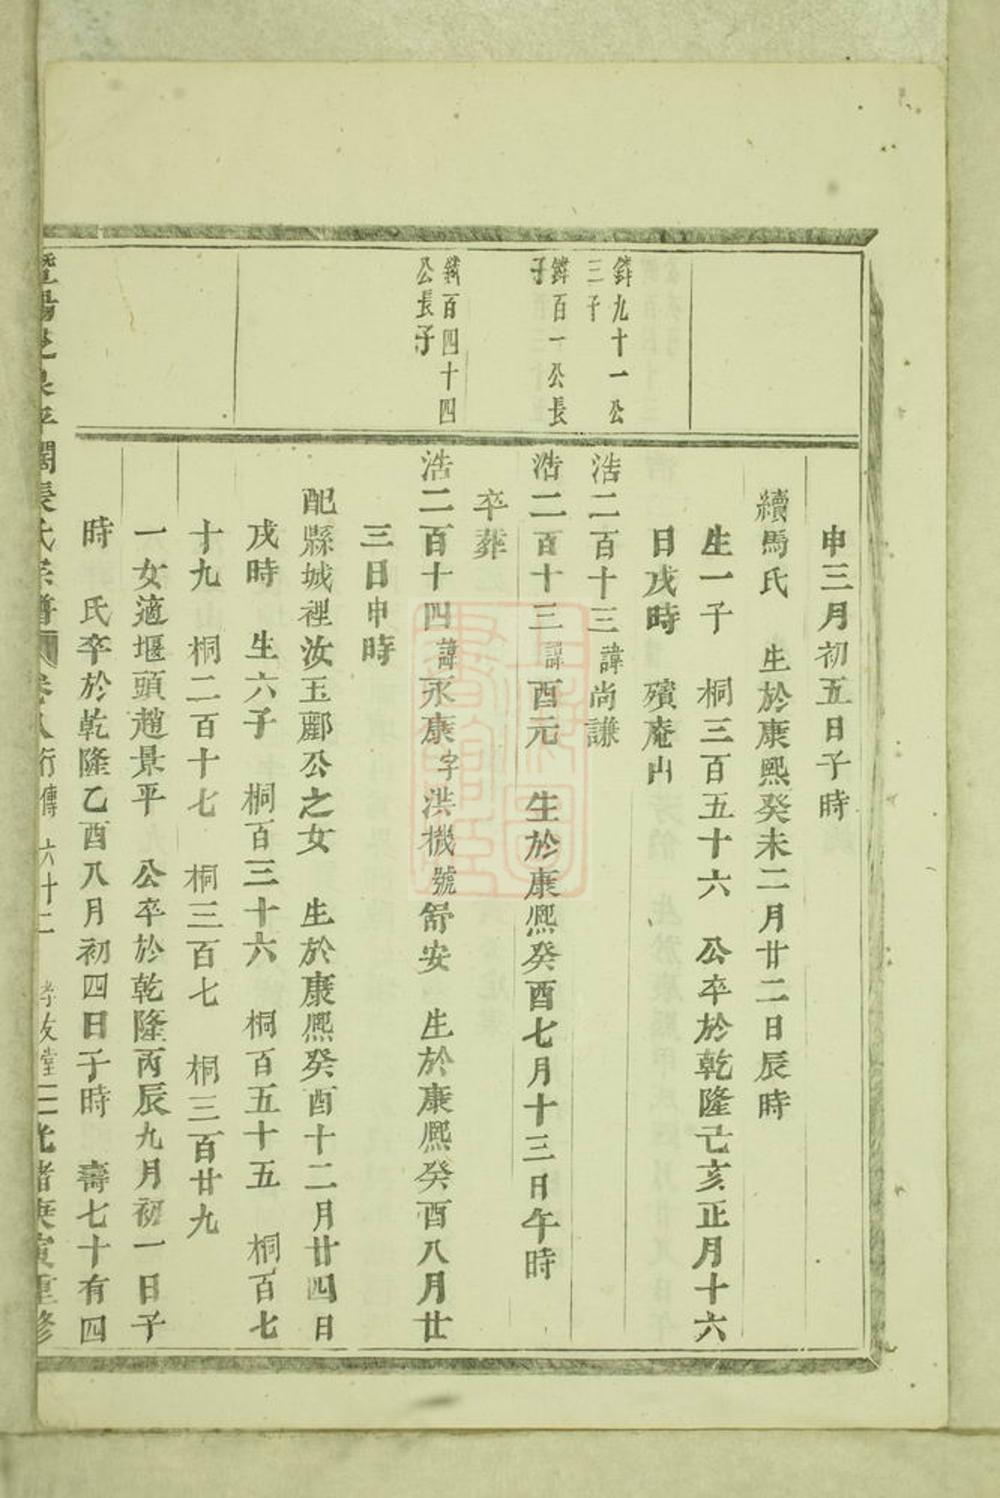 申三月初五日子時
續馬氏 生於康熙癸未二月廿二日辰時
生一子 桐三百五十六 公卒於乾隆己亥正月十六
日戌時 殯庵山
鏵九十一公
三子
浩二百十三諱尚謙
鏵百一公長
子
浩二百十三諱酉元 生於康熙癸酉七月十三日午時
卒葬
百四十四
公長子
浩二百十四諱永康字洪機號舒安 生於康熙癸酉八月廿
三日申時
配縣城裡汝玉酈公之女 生於康熙癸酉十二月廿四日
戌時 生六子 桐百三十六 桐百五十五 桐百七
十九 桐二百十七 桐三百七 桐三百廿九
一女適堰頭趙景平 公卒於乾隆丙辰九月初一日子
時 氏卒於乾隆乙酉八月初四日子時 壽七十有四
暨陽 泉平闊 氏宗譜 卷八行傳 六十二 孝友堂 光緒庚寅重修